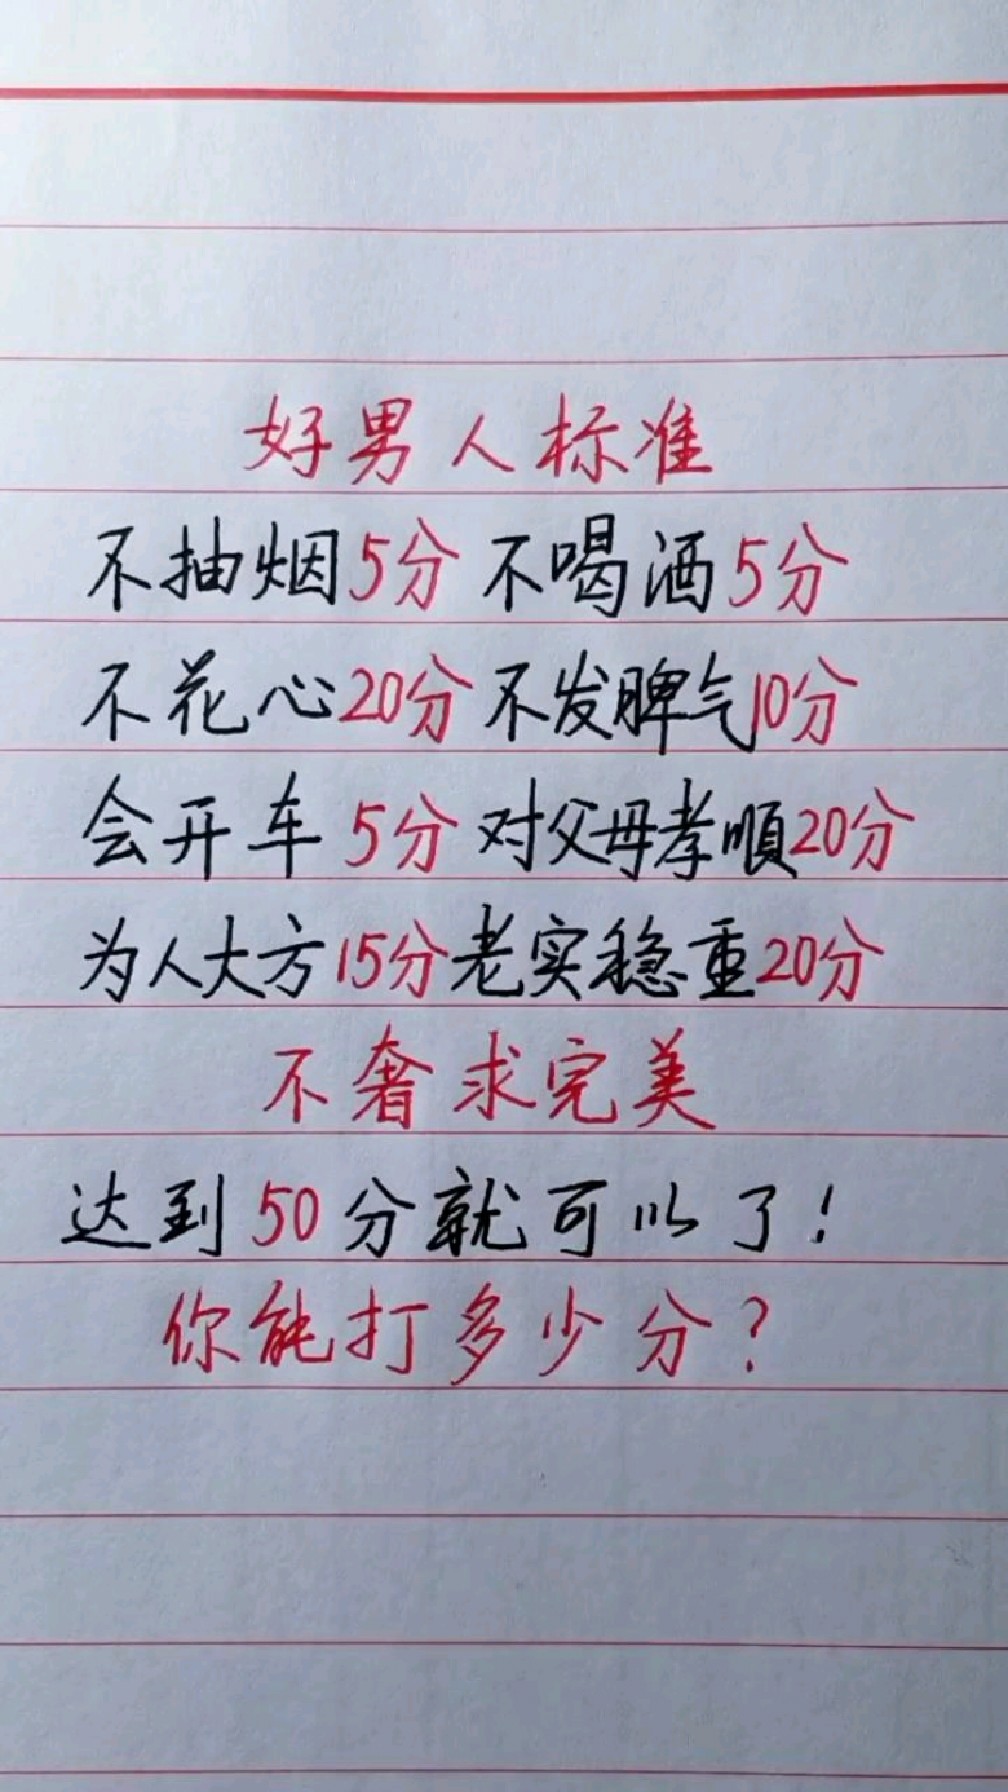 好男人标准
不抽烟5分 不喝酒5分
不花心20分 不发脾气10分
会开车 5分 对父母孝顺20分
为人大方15分 老实稳重20分
不奢求完美
达到50分就可以了!
你能打多少分?